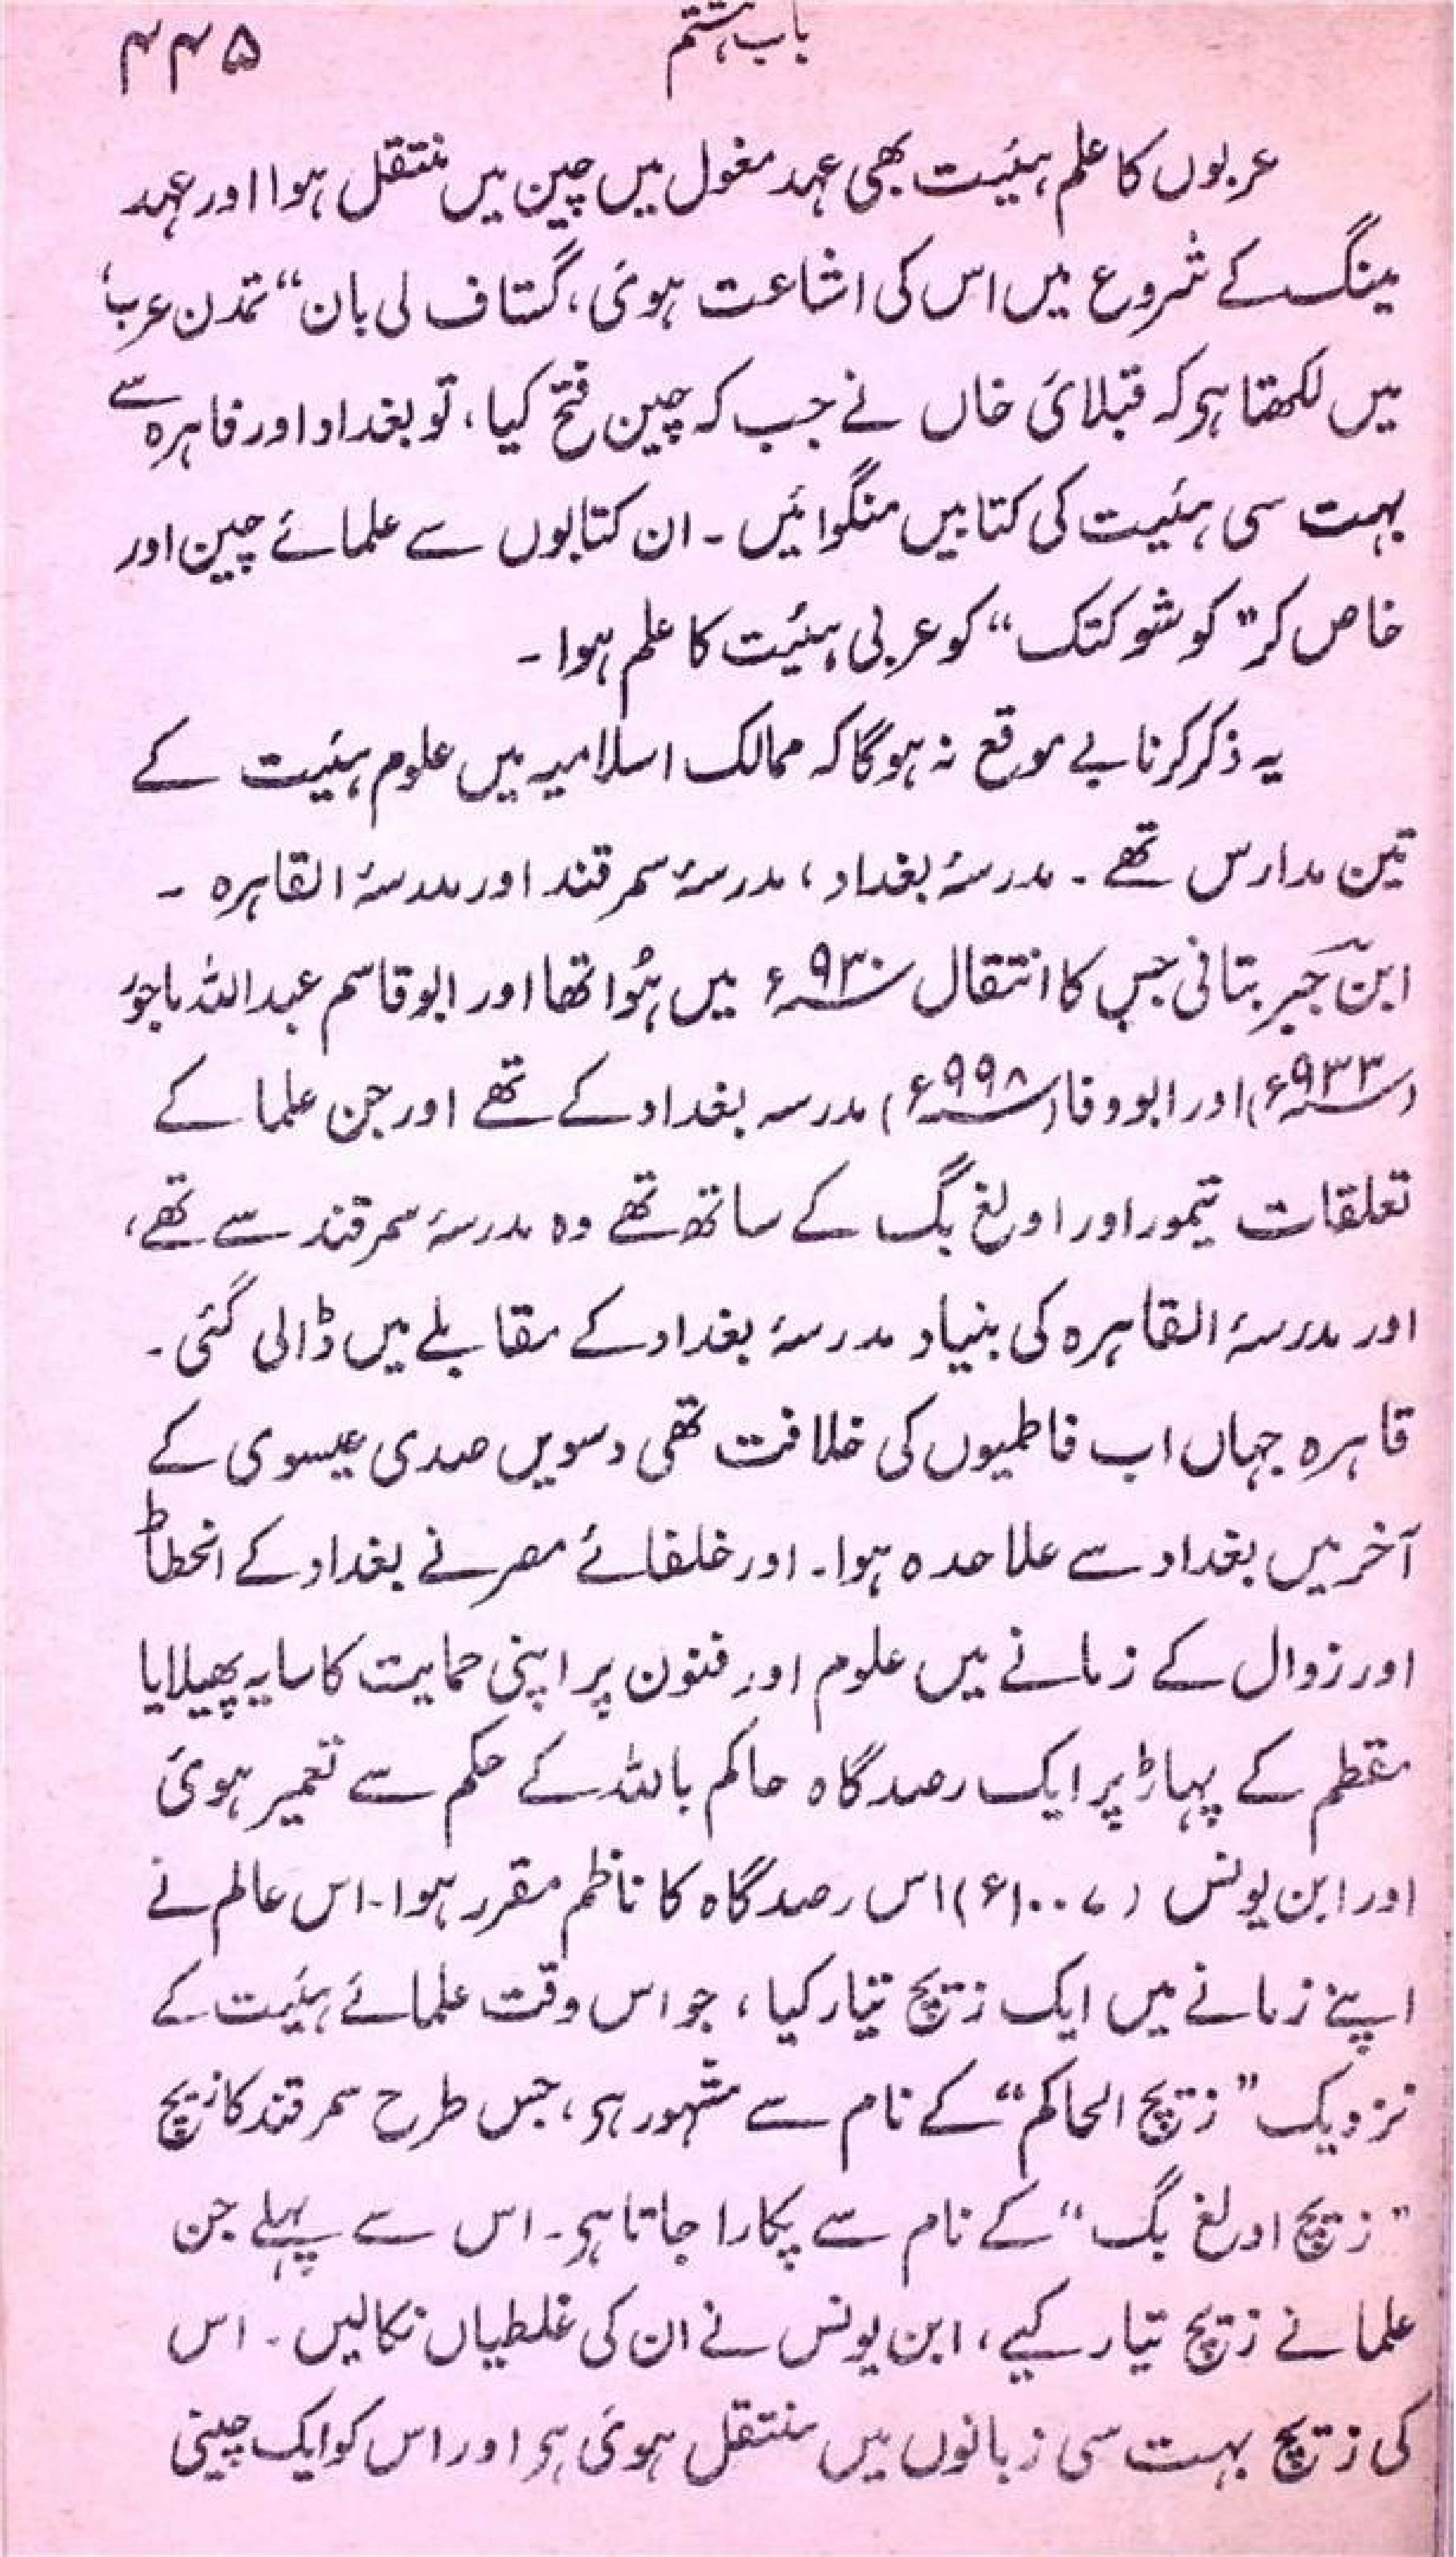 باب ہشتم ۴۴۵
عربوں کا علم ہیئت بھی عہد مغول میں چین میں منتقل ہوا اور عہد
مینگ کے شروع میں اس کی اشاعت ہوئی، گستاف لی بان “تمدن عرب‘
میں لکھتا ہی کہ قبلائی خاں نے جب کہ چین فتح کیا، تو بغداد اور قاہرہ سے
بہت سی ہیئیت کی کتابیں منگوائیں ۔ ان کتابوں سے علمائے چین اور
خاص کر ”کوشوکتک“ کو عربی ہیئیت کا علم ہوا ۔
یہ ذکر کرنا بے موقع نہ ہوگا کہ ممالک اسلامیہ میں علوم ہیئت کے
تین مدارس تھے ۔ مدرسۂ بغداد، مدرسۂ سمرقند اور مدرسۂ القاہرہ ۔
ابن جبیر بتانی جس کا انتقال ۹۳۰ء میں ہُوا تھا اور ابو قاسم عبداللہ باجور
(۹۳۳ء) اور ابو وفا (۹۹۸ء) مدرسہ بغداد کے تھے اور جن علما کے
تعلقات تیمور اور اولغ بگ کے ساتھ تھے وہ مدرسۂ سمرقند سے تھے،
اور مدرسۂ القاہرہ کی بنیاد مدرسۂ بغداد کے مقابلے میں ڈالی گئی ۔
قاہرہ جہاں اب فاطمیوں کی خلافت تھی دسویں صدی عیسوی کے
آخر میں بغداد سے علاحدہ ہوا۔ اور خلفائے مصر نے بغداد کے انحطاط
اور زوال کے زمانے میں علوم اور فنون پر اپنی حمایت کا سایہ پھیلایا
مقطم کے پہاڑ پر ایک رصدگاہ حاکم باللہ کے حکم سے تعمیر ہوئی
اور ابن یونس (۱۰۰۷ء) اس رصدگاہ کا ناظم مقرر ہوا۔ اس عالم نے
اپنے زمانے میں ایک زیچ تیار کیا، جو اس وقت علمائے ہیئیت کے
نزدیک ”زیچ الحاکم“ کے نام سے مشہور ہی، جس طرح سمرقند کا زیچ
”زیچ اولغ بگ“ کے نام سے پکارا جاتا ہی۔ اس سے پہلے جن
علما نے زیچ تیار کیے، ابن یونس نے ان کی غلطیاں نکالیں ۔ اس
کی زیچ بہت سی زبانوں میں منتقل ہوئی ہی اور اس کو ایک چینی